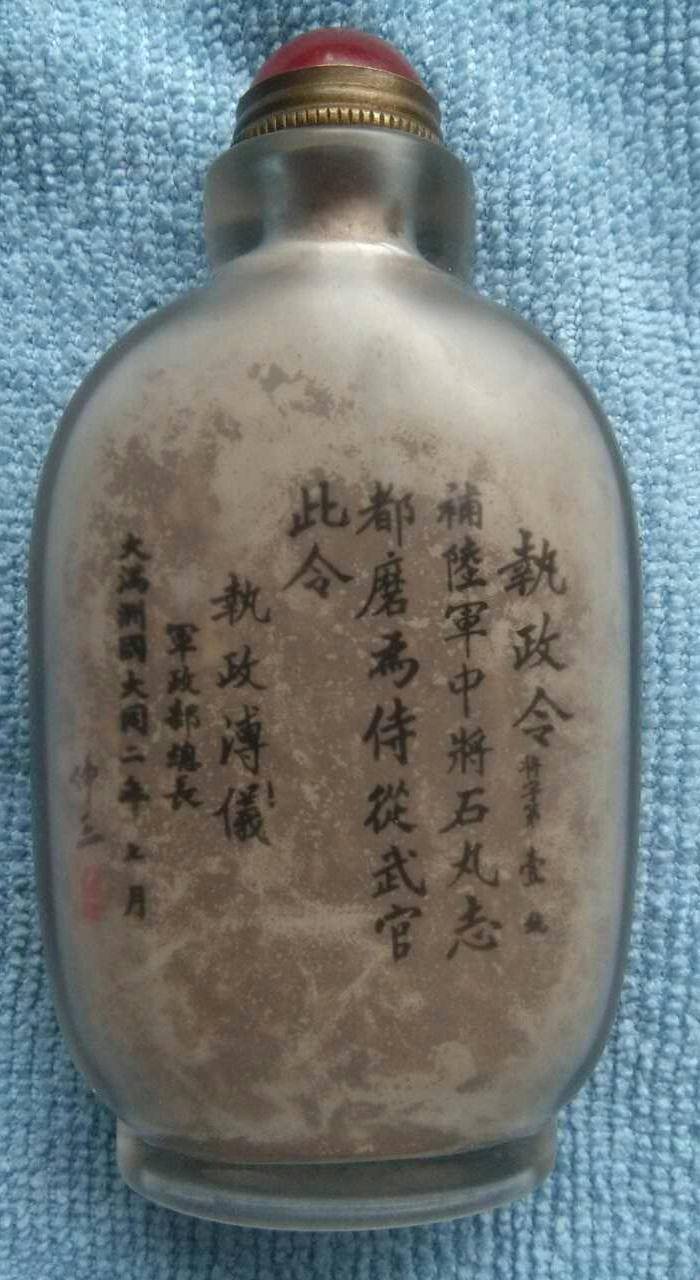 執政令 將字第壹號
補陸軍中將石丸志
都磨為侍從武官
此令
執政溥儀
軍政部總長
大滿洲國大同二年七月
仲三